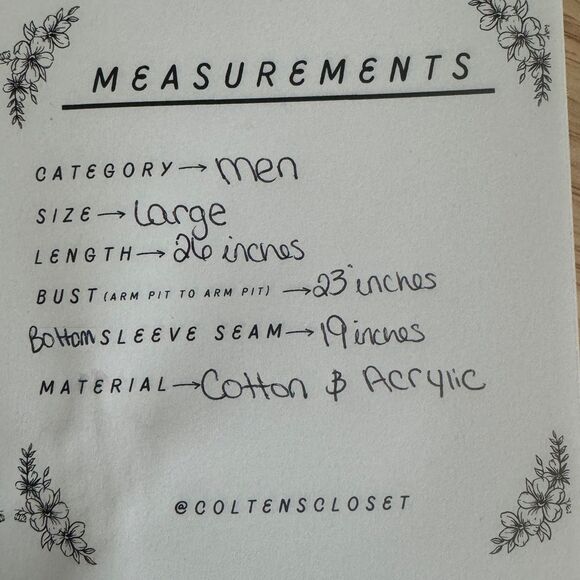 MEASUREMENTS
CATEGORY → men
SIZE → Large
LENGTH → 26 inches
BUST (ARM PIT TO ARM PIT) → 23" inches
Bottom SLEEVE SEAM → 19 inches
MATERIAL → Cotton & Acrylic
@COLTENSCLOSET